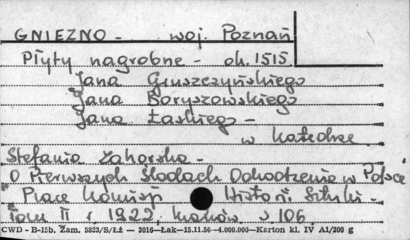 GNIEZNO - woj. Poznań
Płyty nagrobne - ok. 1515
Jana Gruszczyńskiego
Jana Boryszowskiego
Jana Łaskiego -
w katedrze
Stefania Zahorska -
O Pierwszych Śladach Odrodzenia w Polsce
"Prace Komisji Histo ri. Sztuki -
Tom II r. 1922, Kraków. s. 106
CWD - B-15b. Zam. 5823/S/Łź - 3016-Łak-15.11.56-4.000.000-Karton kl. IV A1/200 g